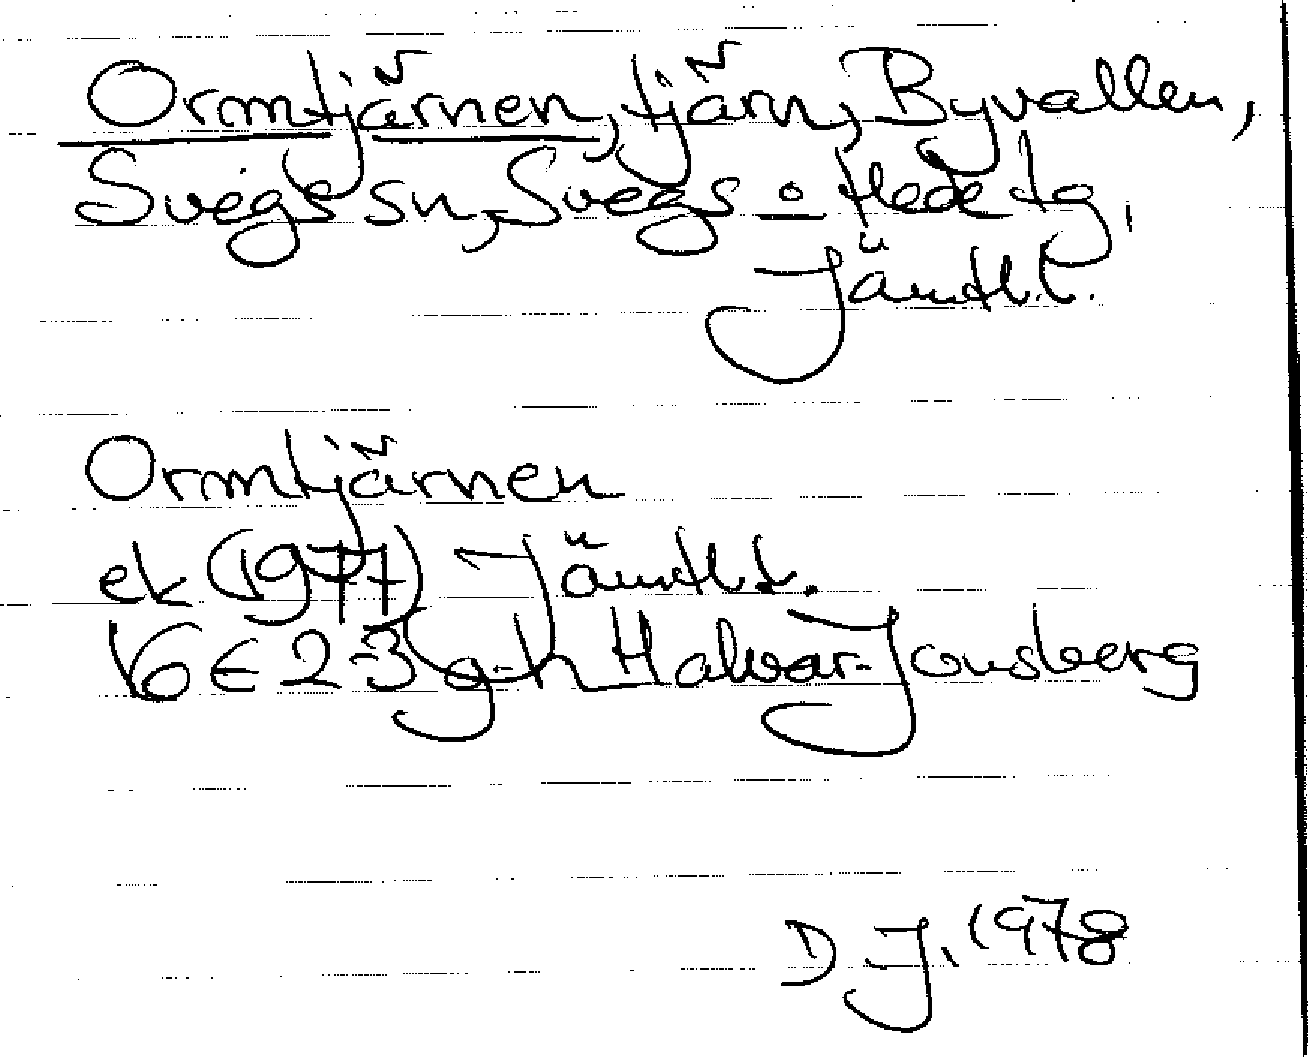 Ormtjärnen, tjärn, Byvallen,
Svegs sn, Svegs o Hede tg,
Jämtl.l.
Ormtjärnen
ek (1977) Jämtl.l.
16 E 2-3 g-h Halvar-Jonsberg
D.J. 1978